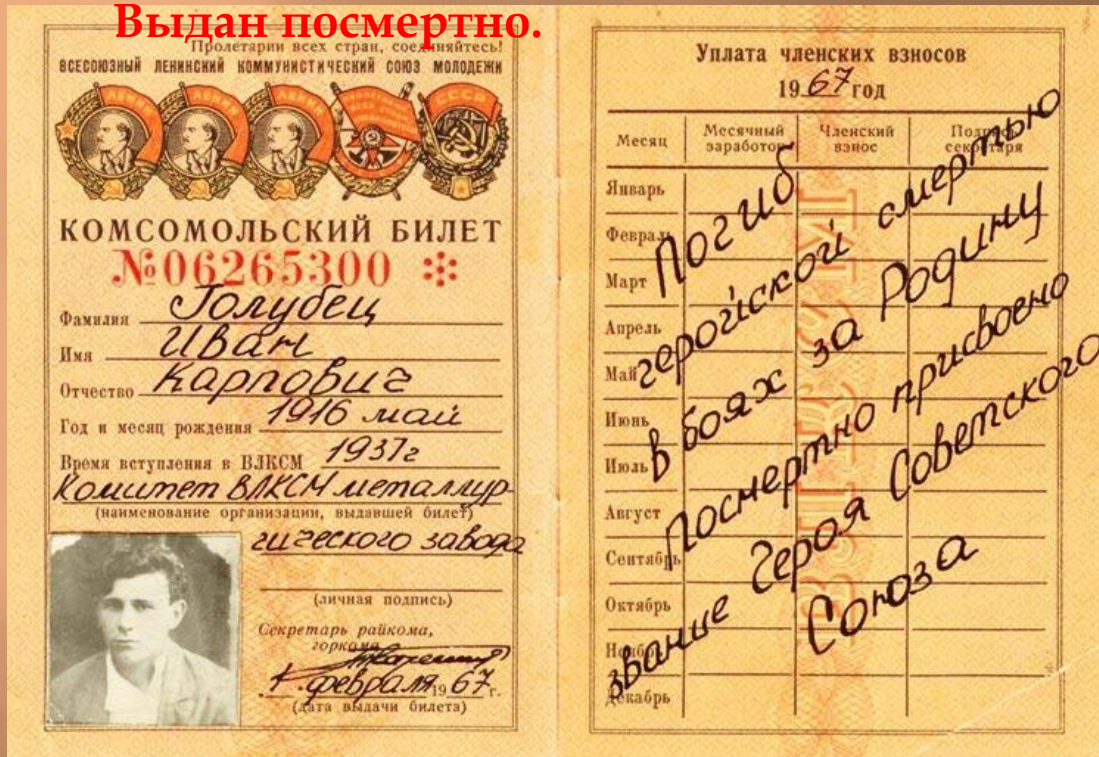 Выдан посмертно.
Пролетарии всех стран, соединяйтесь!
ВСЕСОЮЗНЫЙ ЛЕНИНСКИЙ КОММУНИСТИЧЕСКИЙ СОЮЗ МОЛОДЕЖИ
ЛЕНИН ЛЕНИН ЛЕНИН СССР
КОМСОМОЛЬСКИЙ БИЛЕТ
№06265300
Фамилия Голубец
Имя Иван
Отчество Карпович
Год и месяц рождения 1916 май
Время вступления в ВЛКСМ 1937г
Комитет ВЛКСМ металлур-
(наименование организации, выдавшей билет)
гического завода
(личная подпись)
Секретарь райкома,
горкома
1 февраля 1967 г.
(дата выдачи билета)
Уплата членских взносов
1967 год
Месяц Месячный заработок Членский взнос Подпись секретаря
Январь
Февраль
Март
Апрель
Май
Июнь
Июль
Август
Сентябрь
Октябрь
Ноябрь
Декабрь
Погиб
геройской смертью
в боях за Родину
Посмертно присвоено
звание Героя Советского
Союза
ВЛКСМ